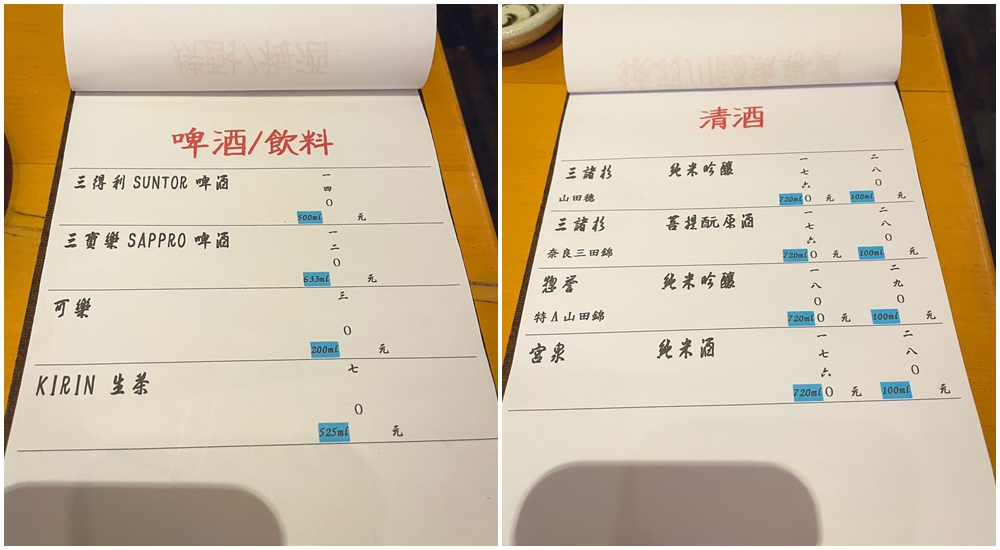 啤酒/飲料
三得利 SUNTOR 啤酒 一四0
500ml 元
三寶樂 SAPPRO 啤酒 一二0
633ml 元
可樂 三0
200ml 元
KIRIN 生茶 七0
525ml 元
清酒
三諸杉 純米吟釀 一七六0 二八0
山田穗 720ml 元 100ml 元
三諸杉 菩提酛原酒 一七六0 二八0
奈良三田錦 720ml 元 100ml 元
惣誉 純米吟釀 一八00 二九0
特A山田錦 720ml 元 100ml 元
宮泉 純米酒 一七六0 二八0
720ml 元 100ml 元